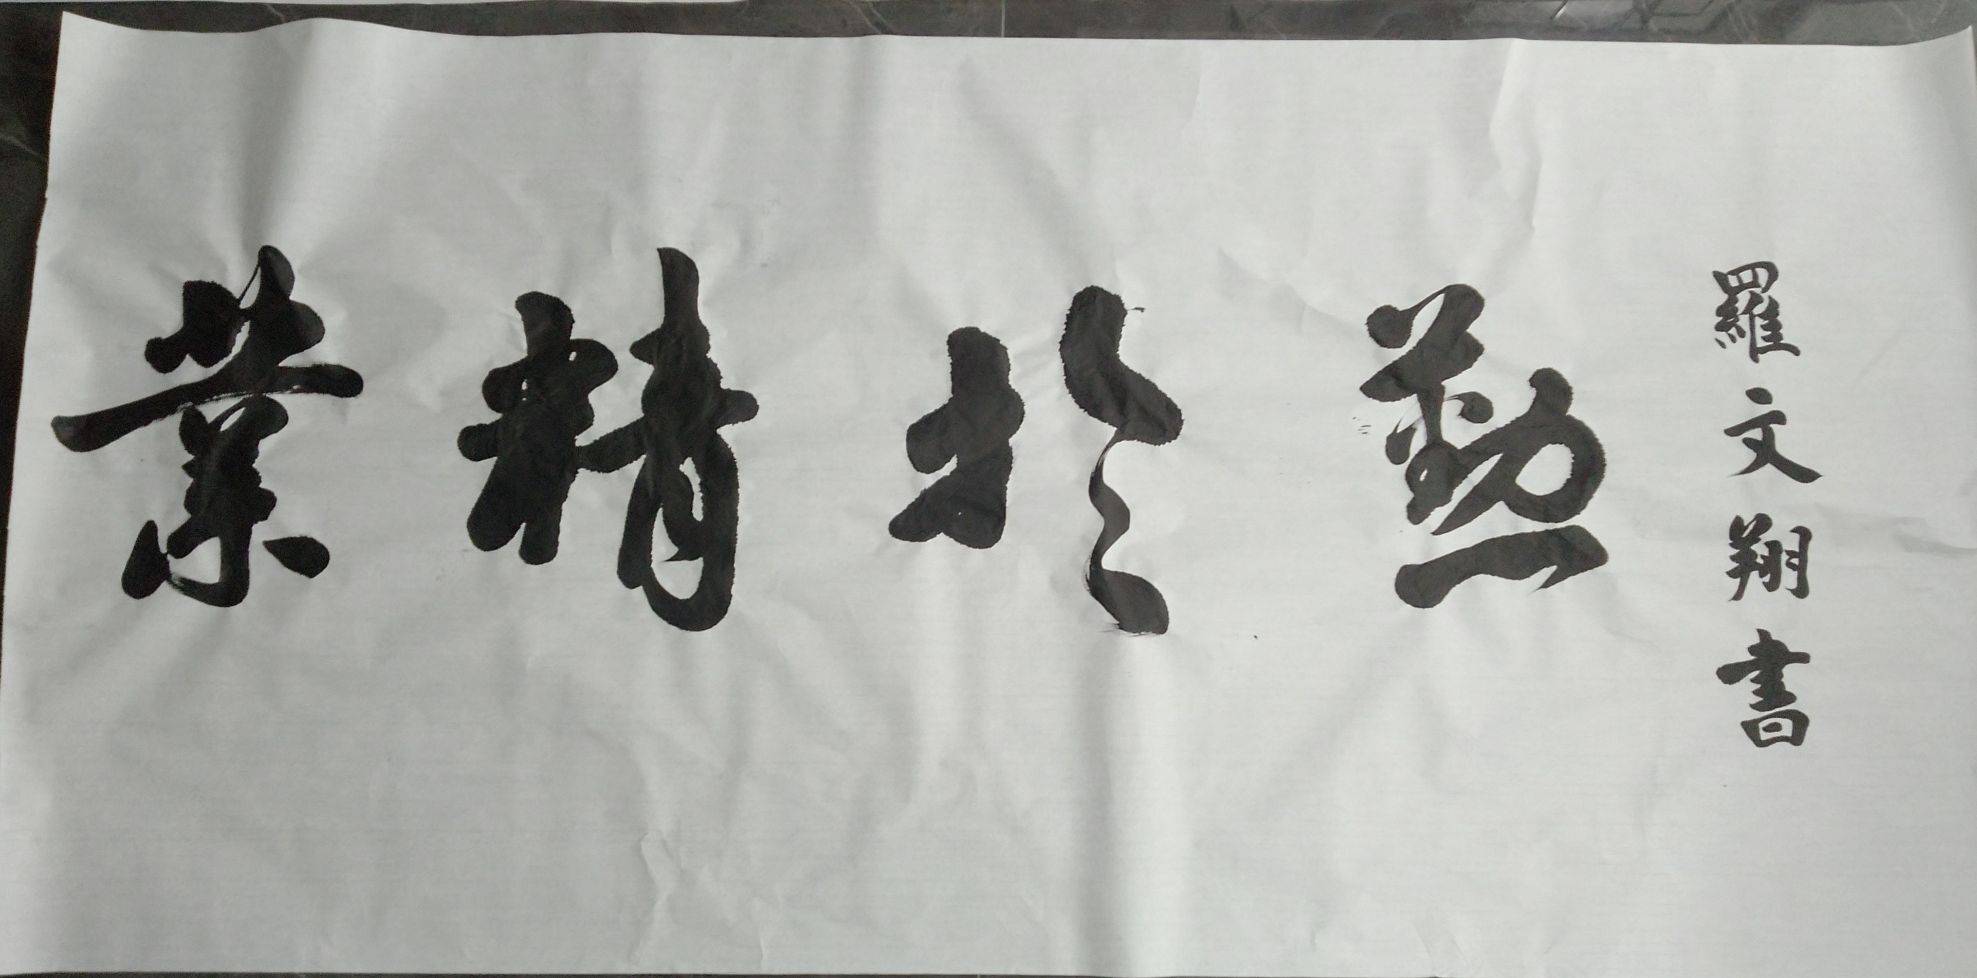 業精於勤
羅文翔書